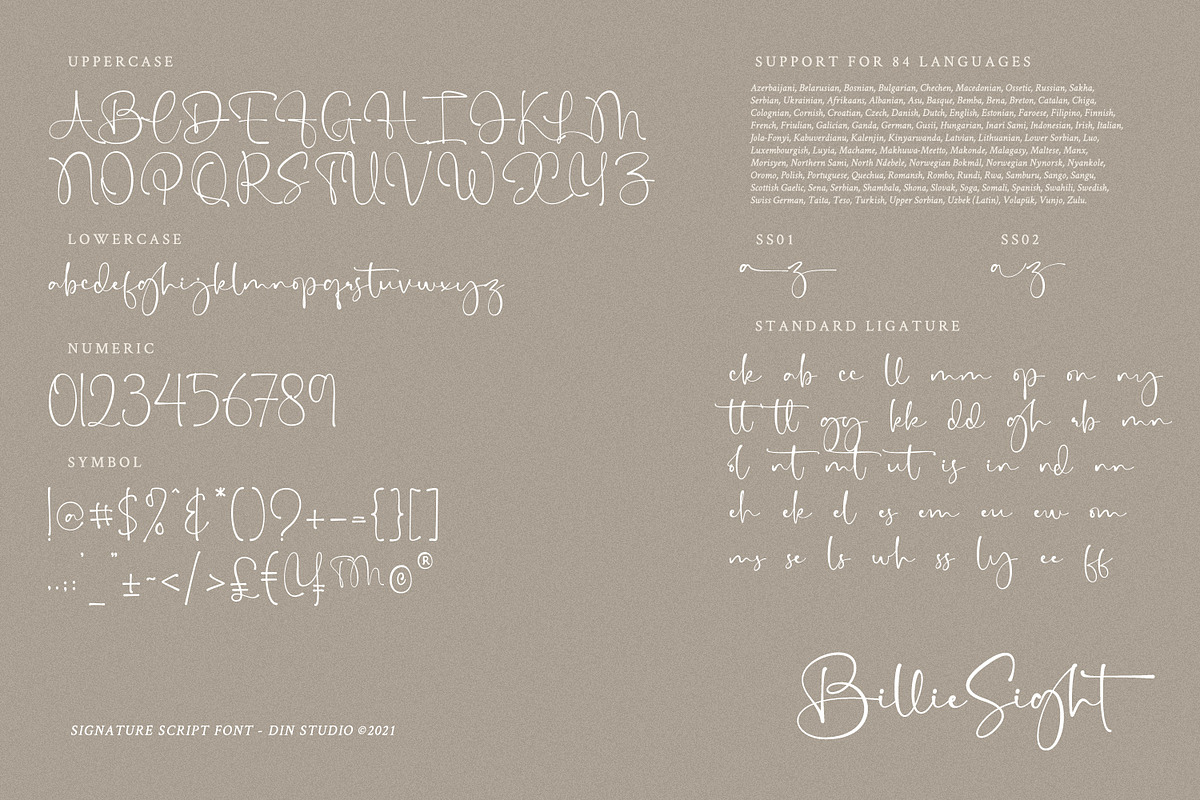 UPPERCASE
ABCDEFGHIJKLM
NOPQRSTUVWXYZ
LOWERCASE
abcdefghijklmnopqrstuvwxyz
NUMERIC
0123456789
SYMBOL
!@#$%^&*()?+-={}[]
.,:;'_"±~</>£€₡¥™©®
SIGNATURE SCRIPT FONT - DIN STUDIO ©2021
SUPPORT FOR 84 LANGUAGES
Azerbaijani, Belarusian, Bosnian, Bulgarian, Chechen, Macedonian, Ossetic, Russian, Sakha,
Serbian, Ukrainian, Afrikaans, Albanian, Asu, Basque, Bemba, Bena, Breton, Catalan, Chiga,
Colognian, Cornish, Croatian, Czech, Danish, Dutch, English, Estonian, Faroese, Filipino, Finnish,
French, Friulian, Galician, Ganda, German, Gusii, Hungarian, Inari Sami, Indonesian, Irish, Italian,
Jola-Fonyi, Kabuverdianu, Kalenjin, Kinyarwanda, Latvian, Lithuanian, Lower Sorbian, Luo,
Luxembourgish, Luyia, Machame, Makhuwa-Meetto, Makonde, Malagasy, Maltese, Manx,
Morisyen, Northern Sami, North Ndebele, Norwegian Bokmål, Norwegian Nynorsk, Nyankole,
Oromo, Polish, Portuguese, Quechua, Romansh, Rombo, Rundi, Rwa, Samburu, Sango, Sangu,
Scottish Gaelic, Sena, Serbian, Shambala, Shona, Slovak, Soga, Somali, Spanish, Swahili, Swedish,
Swiss German, Taita, Teso, Turkish, Upper Sorbian, Uzbek (Latin), Volapük, Vunjo, Zulu.
SS01 SS02
a z a z
STANDARD LIGATURE
ck ab cc ll mm op on ny
tt tl gg kk dd gh rb mn
ol nt mt ut is in nd nn
eh ek el es em eu ew om
ms se ls wh ss ly ee ff
Billie Sight